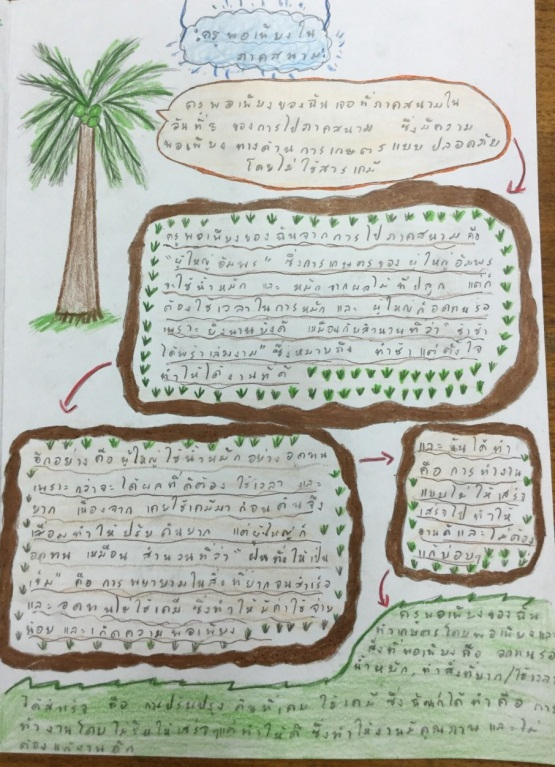 ครูพอเพียงใน
ภาคสนาม
ครูพอเพียงของฉันเจอที่ภาคสนามใน
วันที่ ๒ ของการไปภาคสนาม ซึ่งมีความ
พอเพียงทางด้านการเกษตรแบบปลอดภัย
โดยไม่ใช้สารเคมี
ครูพอเพียงของฉันจากการไปภาคสนาม คือ
"ผู้ใหญ่อัมพร" ซึ่งการเกษตรของผู้ใหญ่อัมพร
จะใช้น้ำหมัก และ หมักจากผลไม้ที่ปลูก แต่ก็
ต้องใช้เวลาในการหมัก และ ผู้ใหญ่ก็อดทนรอ
เพราะยิ่งนานยิ่งดี เหมือนกับสำนวนที่ว่า "ช้าช้า
ได้พร้าเล่มงาม" ซึ่งหมายถึง ทำช้าแต่ตั้งใจ
ทำให้ได้งานที่ดี
อีกอย่าง คือ ผู้ใหญ่ใช้น้ำหมักอย่างอดทน
เพราะกว่าจะได้ผลที่ดีต้องใช้เวลา และ
ยาก เนื่องจากเคยใช้เคมีมาก่อนดินจึง
เสื่อมทำให้ปรับดินยาก แต่ผู้ใหญ่ก็
อดทน เหมือน สำนวนที่ว่า "ฝนทั่งให้เป็น
เข็ม" คือ การพยายามในสิ่งที่ยากจนสำเร็จ
และ อดทนไม่ใช้เคมี ซึ่งทำให้มีค่าใช้จ่าย
น้อย และเกิดความพอเพียง
และฉันได้ทำ
คือ การทำงาน
แบบไม่ให้เสร็จ
เสร็จไปทำให้
งานดีและไม่ต้อง
แก้บ่อยๆ
ครูพอเพียงของฉัน
ทำเกษตรโดยพอเพียงและ
สิ่งที่พอเพียงคือ อดทนรอ
น้ำหมัก, ทำสิ่งที่ยาก/ใช้เวลา
ได้สำเร็จ คือ การปรับปรุงดินที่เคยใช้เคมี ซึ่งฉันก็ได้ทำคือ การ
ทำงานโดยไม่รีบให้เสร็จๆแต่ทำให้ดี ซึ่งทำให้งานมีคุณภาพ และไม่
ต้องแก้งานอีก